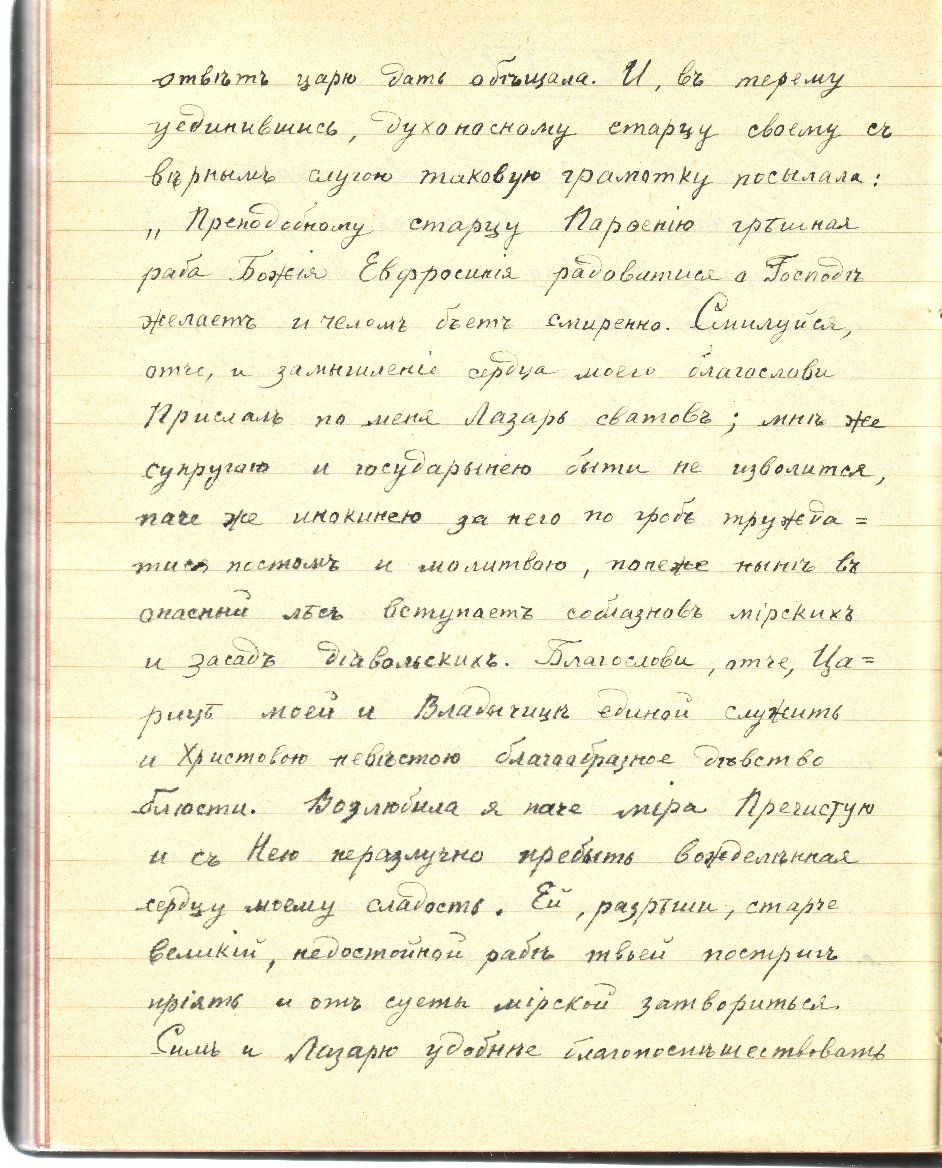 отвѣтъ царю дать обѣщала. И, въ терему
уединившись, духоносному старцу своему съ
вѣрнымъ слугою таковую грамотку посылала:
„Преподобному старцу Парѳенію грѣшная
раба Божія Евфросинія радоватися о Господѣ
желаетъ и челомъ бьетъ смиренно. Смилуйся,
отче, и замышленіе сердца моего благослови
Прислалъ по меня Лазарь сватовъ; мнѣ же
супругою и государынею быти не изволится,
паче же инокинею за него по гробъ тружда=
тися постомъ и молитвою, понеже нынѣ въ
опасный лѣсъ вступаетъ соблазновъ мірскихъ
и засадъ діавольскихъ. Благослови, отче, Ца=
рицѣ моей и Владычицѣ единой служить
и Христовою невѣстою благообразное дѣвство
блюсти. Возлюбила я паче міра Пречистую
и съ Нею неразлучно пребыть вожделѣнная
сердцу моему сладость. Ей, разрѣши, старче
великій, недостойной рабѣ твоей постригъ
пріять и отъ суеты мірской затвориться.
Симъ и Лазарю удобнѣе благопоспѣшествовать